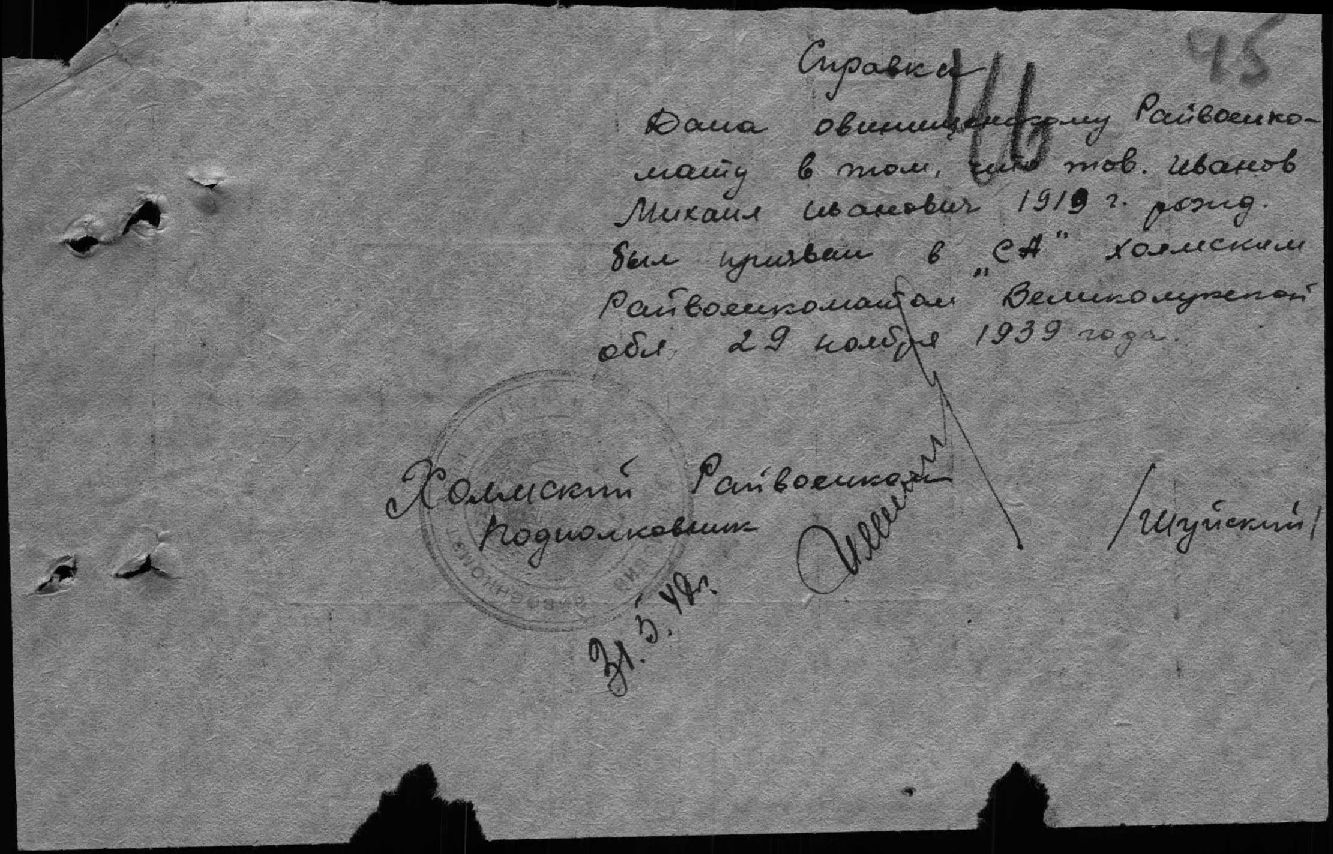 45
Справка
46
Дана овинищенскому Райвоенко-
мату в том, что тов. Иванов
Михаил Иванович 1919 г. рожд.
был призван в „СА" Холмским
Райвоенкоматом Великолукской
обл. 29 ноября 1939 года.
Холмский Райвоенком
Подполковник /Шуйский/
31.5.49г.